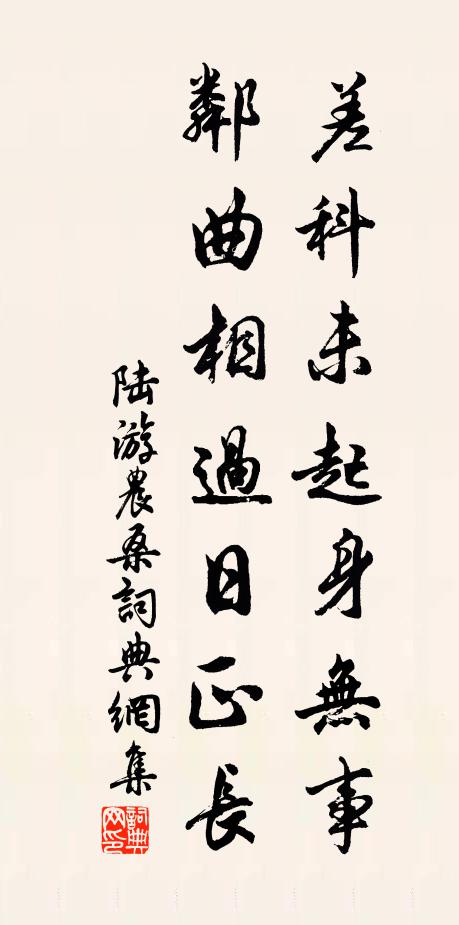 差科未起身無事
鄰曲相過日正長
陆游農桑詞典網集
詞典网印